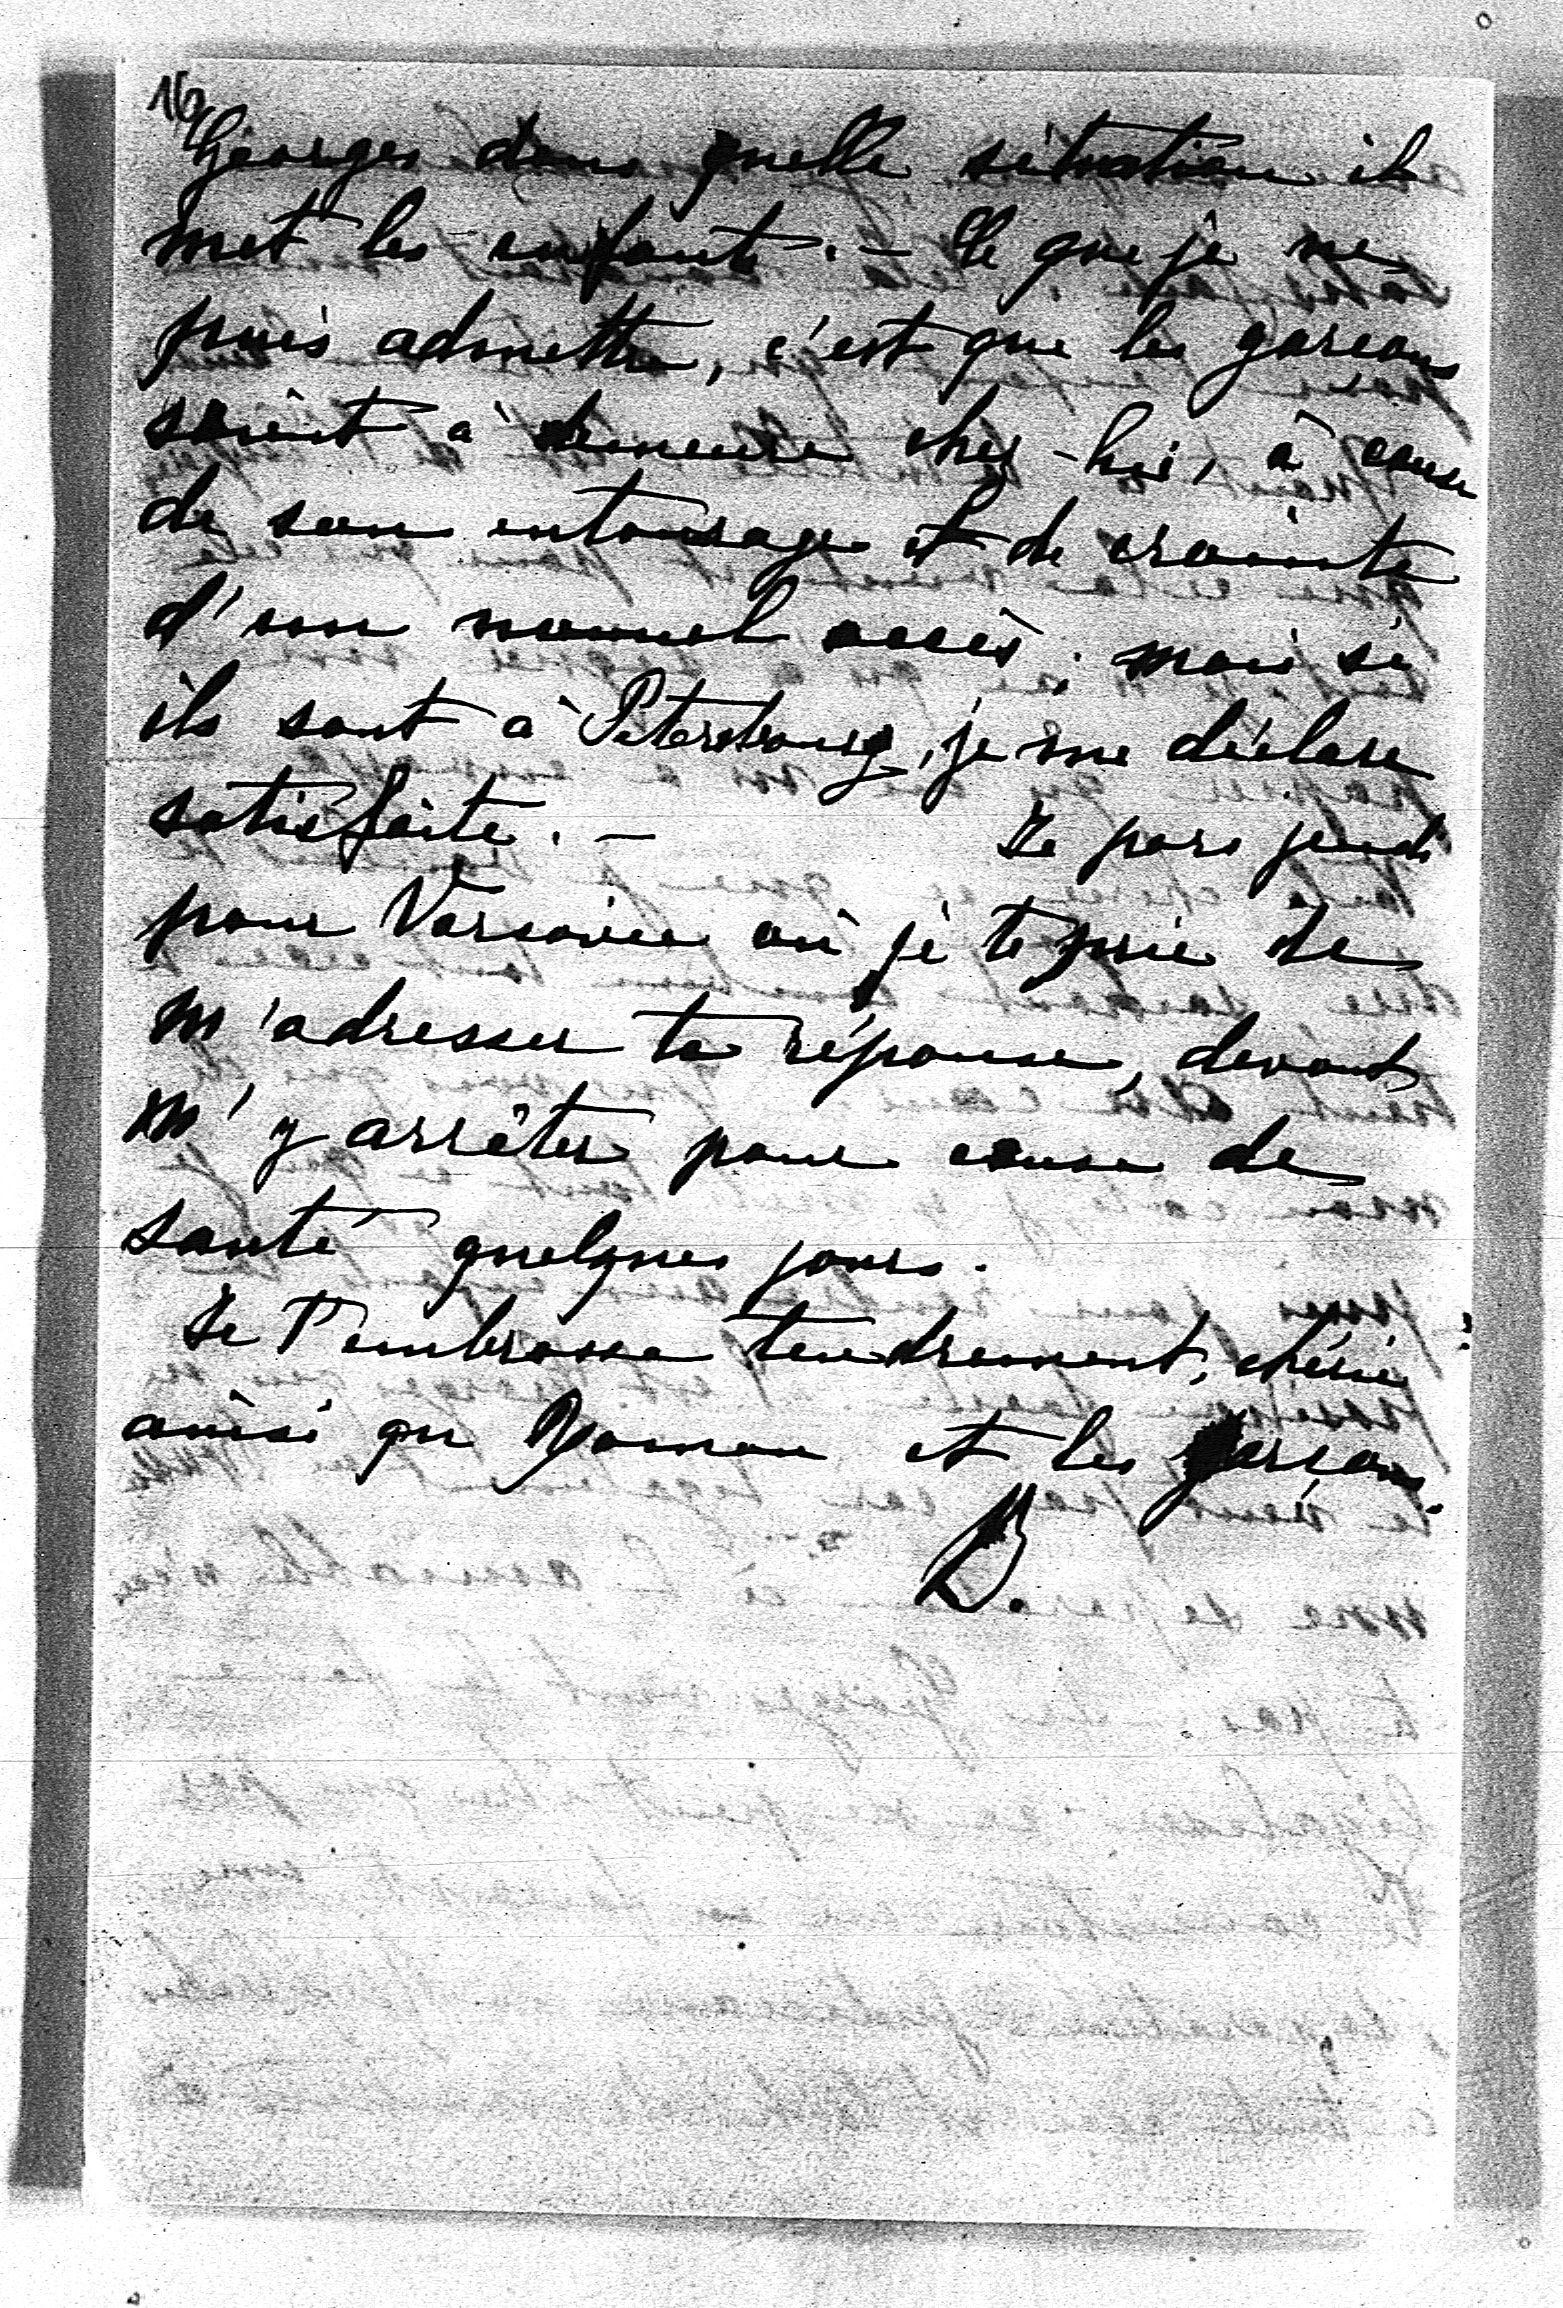 16
Georges dans quelle situation il
met les enfants. – Ce que je ne
puis admettre, c'est que les garçons
soient à demeure chez-lui, à cause
de son entourage et de crainte
d'un nouvel accès; mais si
ils sont à Pétersbourg, je me déclare
satisfaite. – Je pars jeudi
pour Varsovie où je te prie de
m'adresser ta réponse, devant
m'y arrêter pour cause de
santé quelques jours.
Je t'embrasse tendrement, chérie
ainsi que Roman et les garçons.
B.